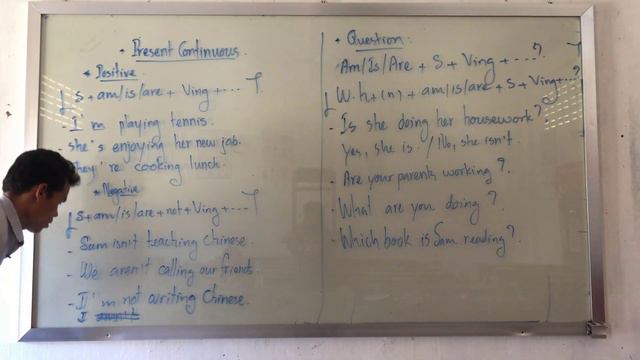 * Present Continuous.
* Positive
S + am/is/are + Ving + ....
- I'm playing tennis.
- she's enjoying her new job.
They're cooking lunch.
* Negative
S + am/is/are + not + Ving + ....
- Sam isn't teaching Chinese.
- We aren't calling our friends
- I'm not writing Chinese.
I
* Question:
Am/Is/Are + S + Ving + ....?
W.h + (n) + am/is/are + S + Ving + ...?
- Is she doing her housework?
Yes, she is. / No, she isn't.
- Are your parents working?
- What are you doing?
- Which book is Sam reading?